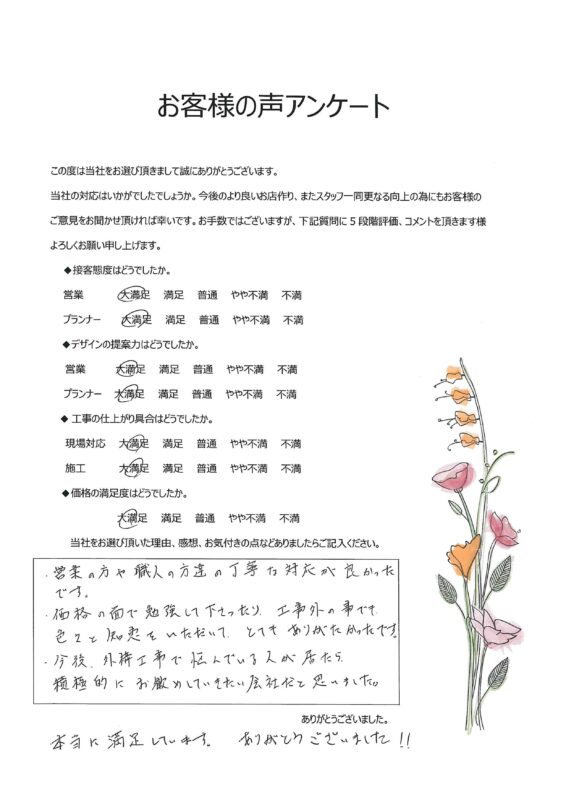 お客様の声アンケート
この度は当社をお選び頂きまして誠にありがとうございます。
当社の対応はいかがでしたでしょうか。今後のより良いお店作り、またスタッフ一同更なる向上の為にもお客様の
ご意見をお聞かせ頂ければ幸いです。お手数ではございますが、下記質問に 5 段階評価、コメントを頂きます様
よろしくお願い申し上げます。
◆接客態度はどうでしたか。
営業 大満足 満足 普通 やや不満 不満
プランナー 大満足 満足 普通 やや不満 不満
◆デザインの提案力はどうでしたか。
営業 大満足 満足 普通 やや不満 不満
プランナー 大満足 満足 普通 やや不満 不満
◆ 工事の仕上がり具合はどうでしたか。
現場対応 大満足 満足 普通 やや不満 不満
施工 大満足 満足 普通 やや不満 不満
◆価格の満足度はどうでしたか。
大満足 満足 普通 やや不満 不満
当社をお選び頂いた理由、感想、お気付きの点などありましたらご記入ください。
・営業の方や職人の方達の丁寧な対応が良かった
です。
・価格の面で勉強して下さったり、工事外の事でも
色々と知恵をいただいて、とてもありがたかったです。
・今後、外構工事で悩んでいる人が居たら
積極的にお勧めしていきたい会社だと思いました。
ありがとうございました。
本当に満足しています。 ありがとうございました!!